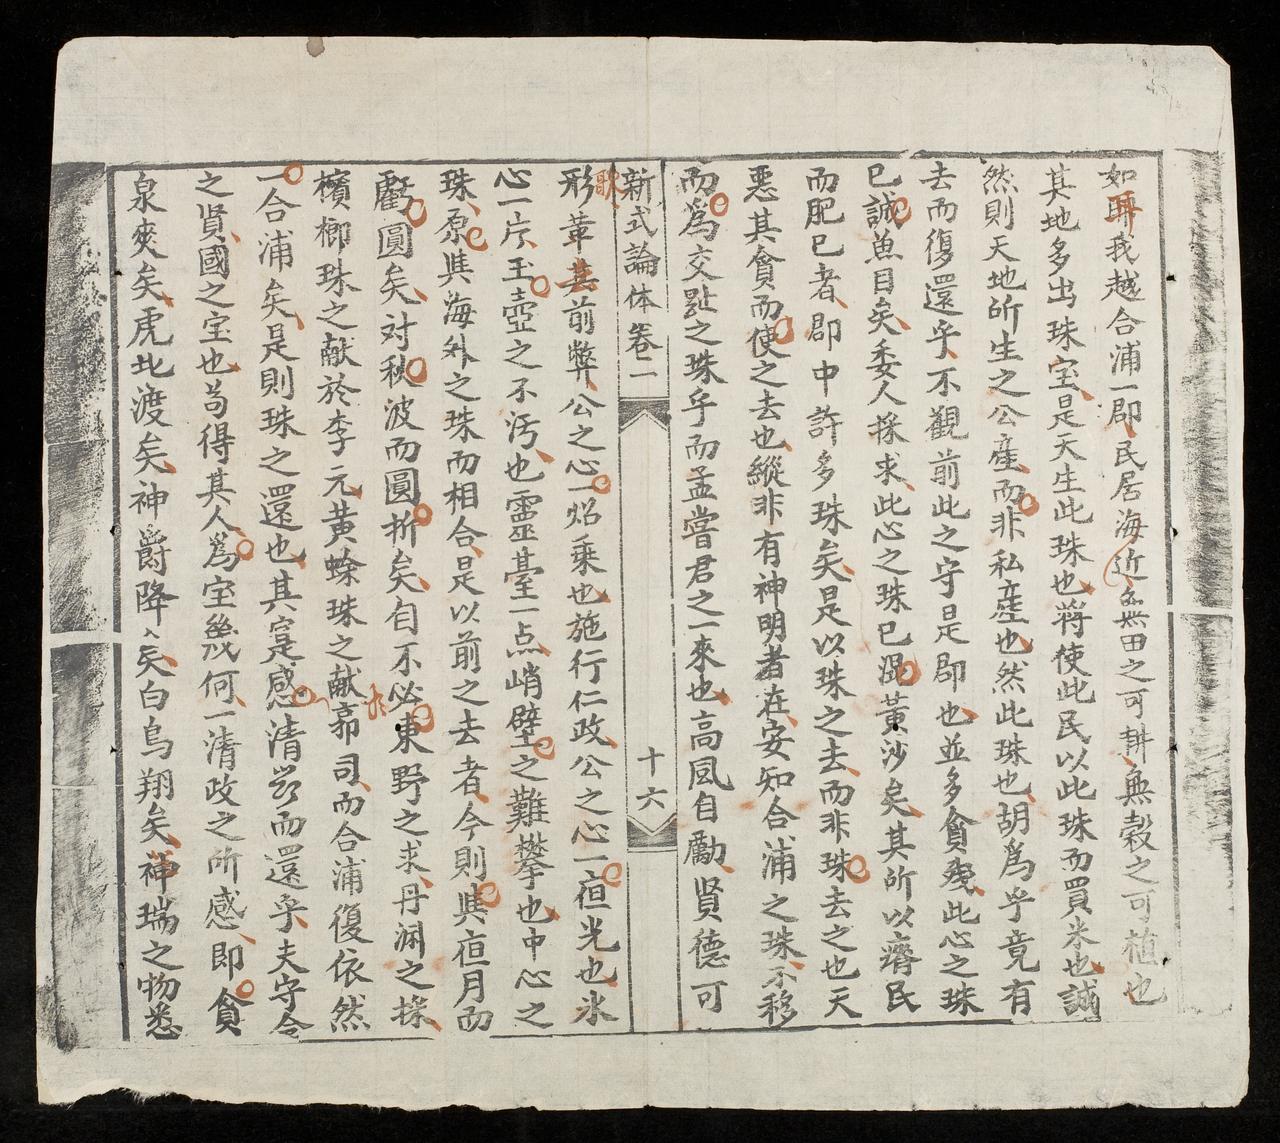 如耼我越合浦一郡民居海近無田之可耕無穀之可植也
其地多出珠宝是天生此珠也將使此民以此珠而買米也誠
然則天地所生之公産而非私産也然此珠也胡爲乎竟有
去而復還乎不觀前此之守是郡也並多貪殘此心之珠
已誠魚目矣委人採求此心之珠已混黃沙矣其所以瘠民
而肥已者郡中許多珠矣是以珠之去而非珠去之也天
惡其貪而使之去也縱非有神明者在安知合浦之珠不移
而爲交趾之珠乎而孟嘗君之一來也高風自勵賢德可
新式論体卷二
十六
形革其前弊公之心一炤乗也施行仁政公之心一夜光也氷
心一片玉壺之不污也靈臺一点峭壁之難攀也中心之
珠原與海外之珠而相合是以前之去者今則與夜月而
圓矣对秋波而圓折矣自不必東野之求丹淵之採
檳榔珠之献於李元黄蜍珠之献郭司而合浦復依然
一合浦矣是則珠之還也其寔感清而還乎夫守令
之賢國之宝也苟得其人爲宝幾何一清政之所感即貪
泉爽矣虎北渡矣神爵降矣白鳥翔矣神瑞之物悉